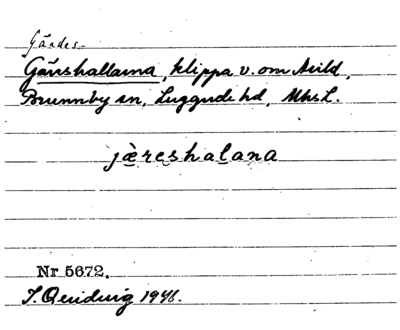 Gärdes-
Gärshallarna, klippa v. om Arild,
Brunnby sn, Luggude hd, Mhs L.
jæreshalana
Nr 5672.
1946.